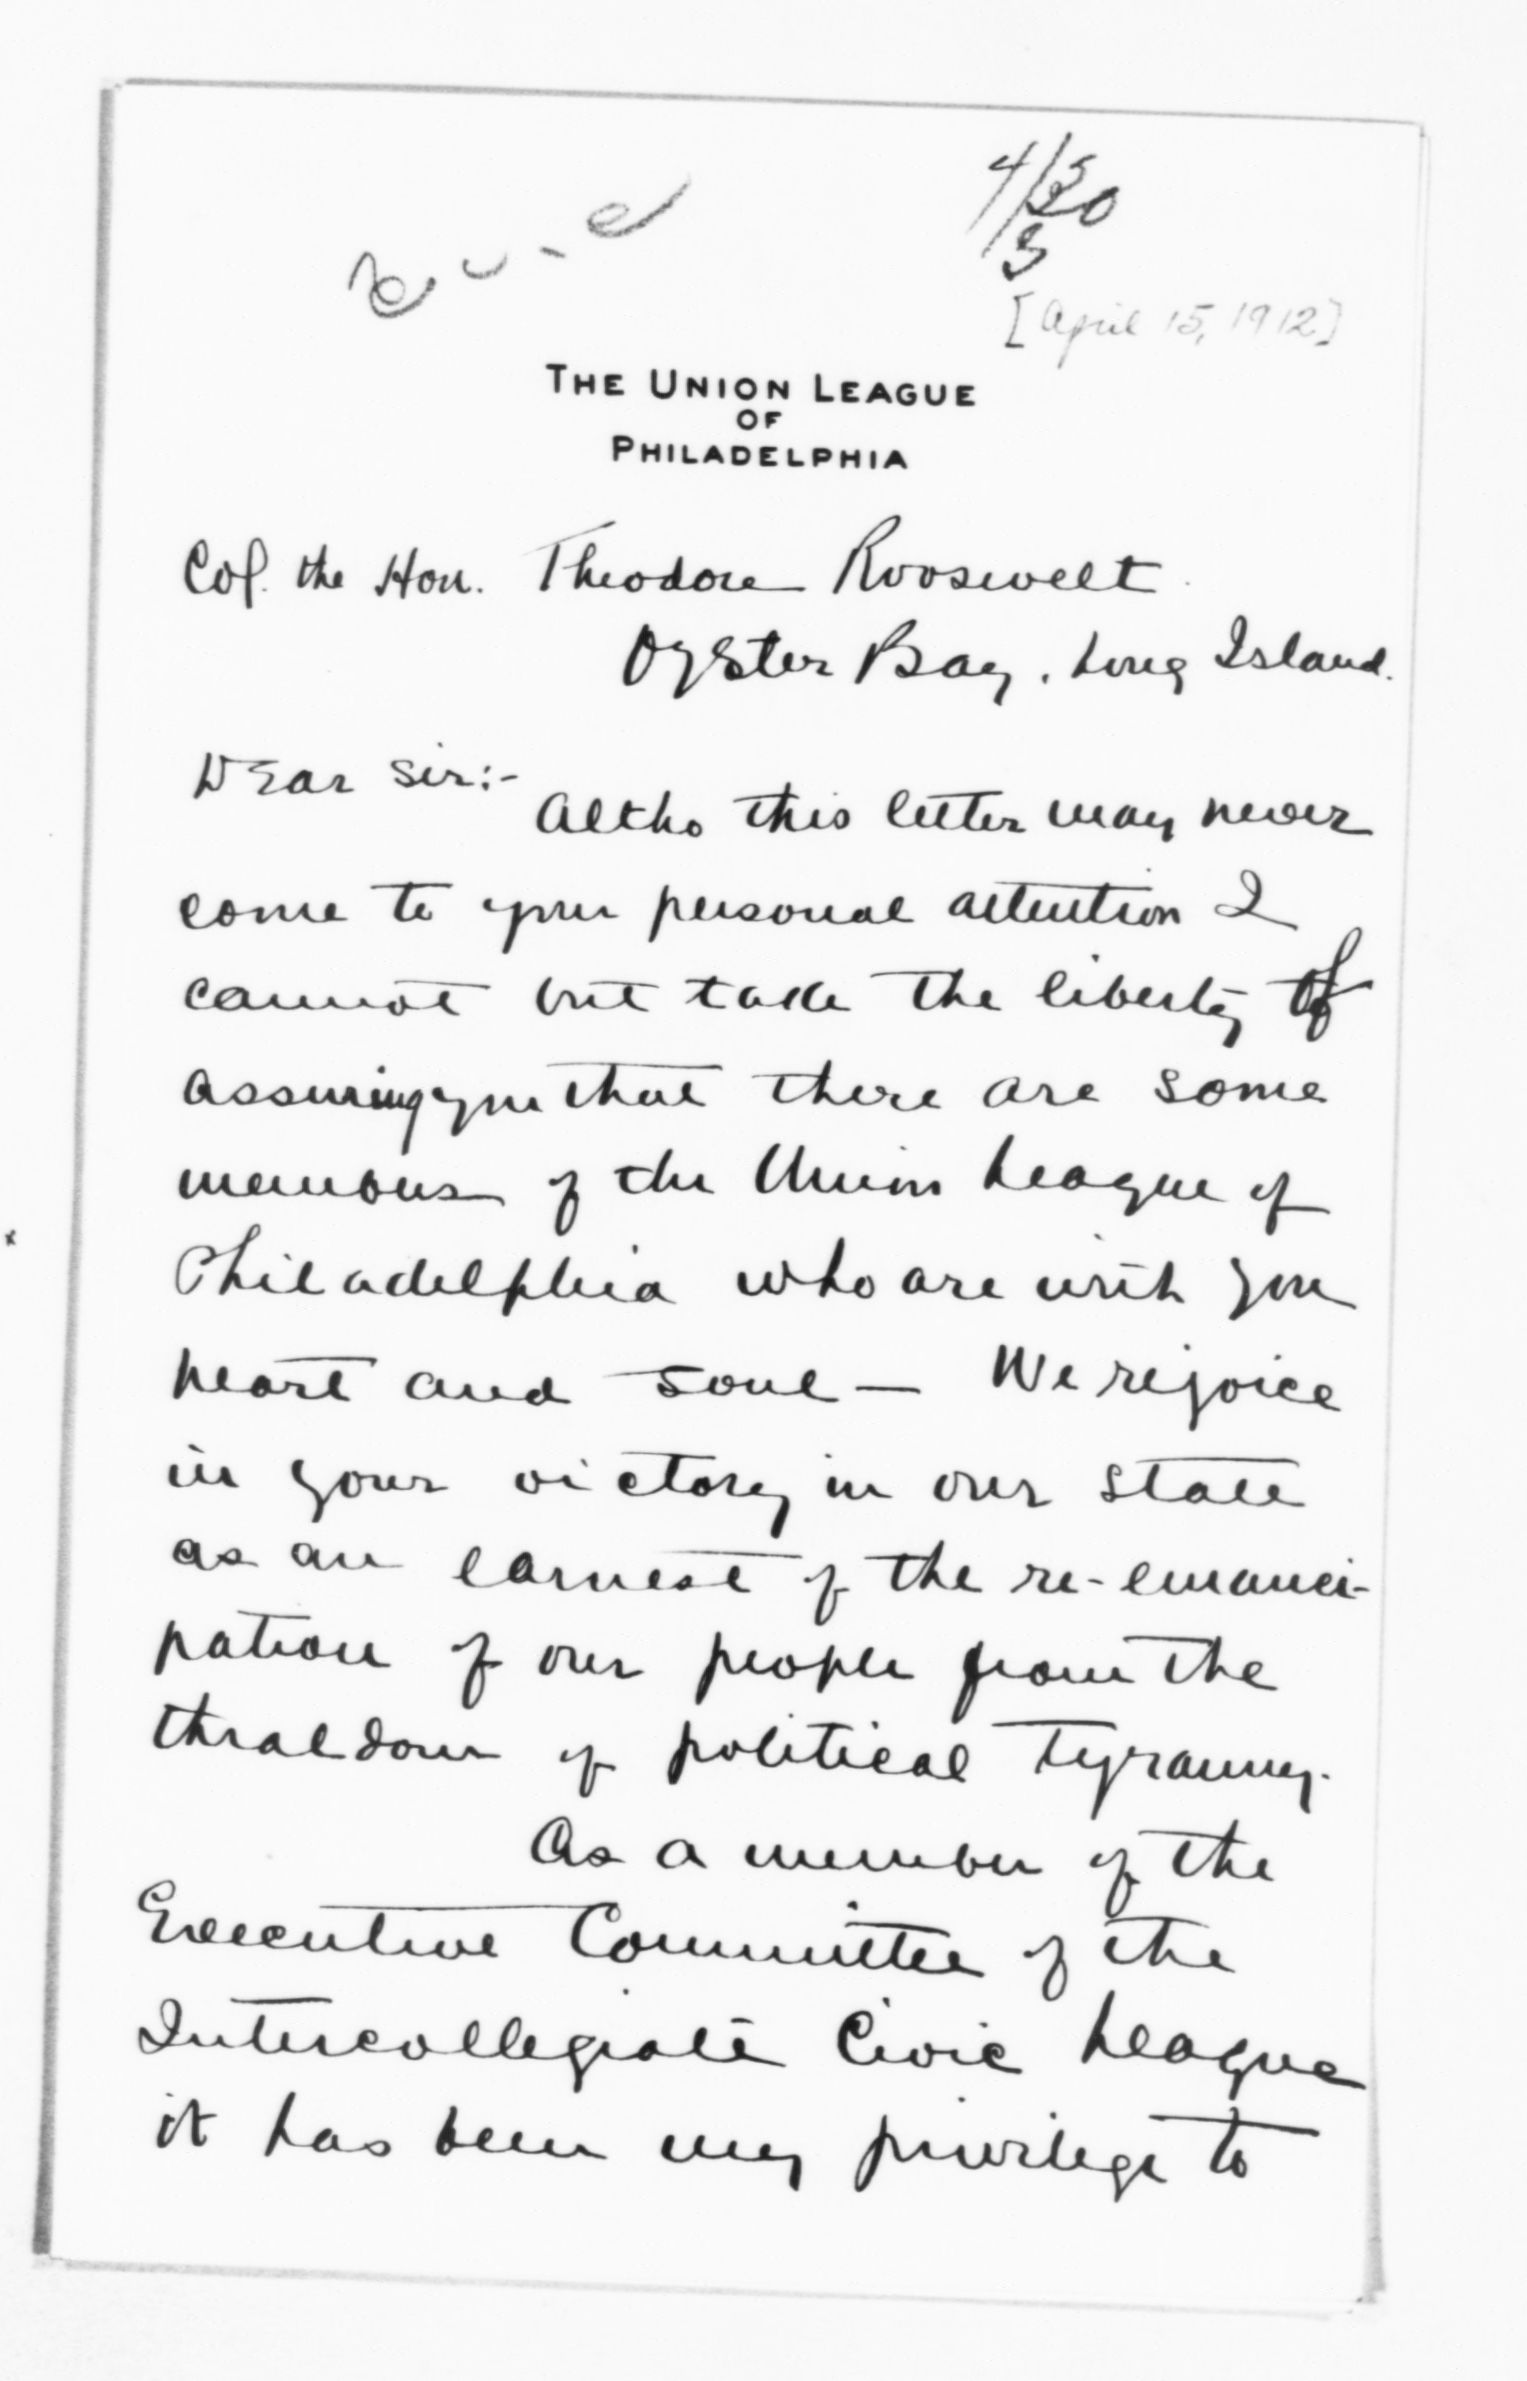 [April 15, 1912]
THE UNION LEAGUE
OF
PHILADELPHIA
Col. the Hon. Theodore Roosevelt
Oyster Bay, Long Island.
Dear Sir:-
Altho this letter may never
come to your personal attention I
cannot but take the liberty of
assuring you that there are some
members of the Union League of
Philadelphia who are with you
heart and soul — We rejoice
in your victory in our state
as an earnest of the re-emanci-
pation of our people from the
thraldom of political tyranny.
As a member of the
Executive Committee of the
Intercollegiate Civic League
it has been my privilege to